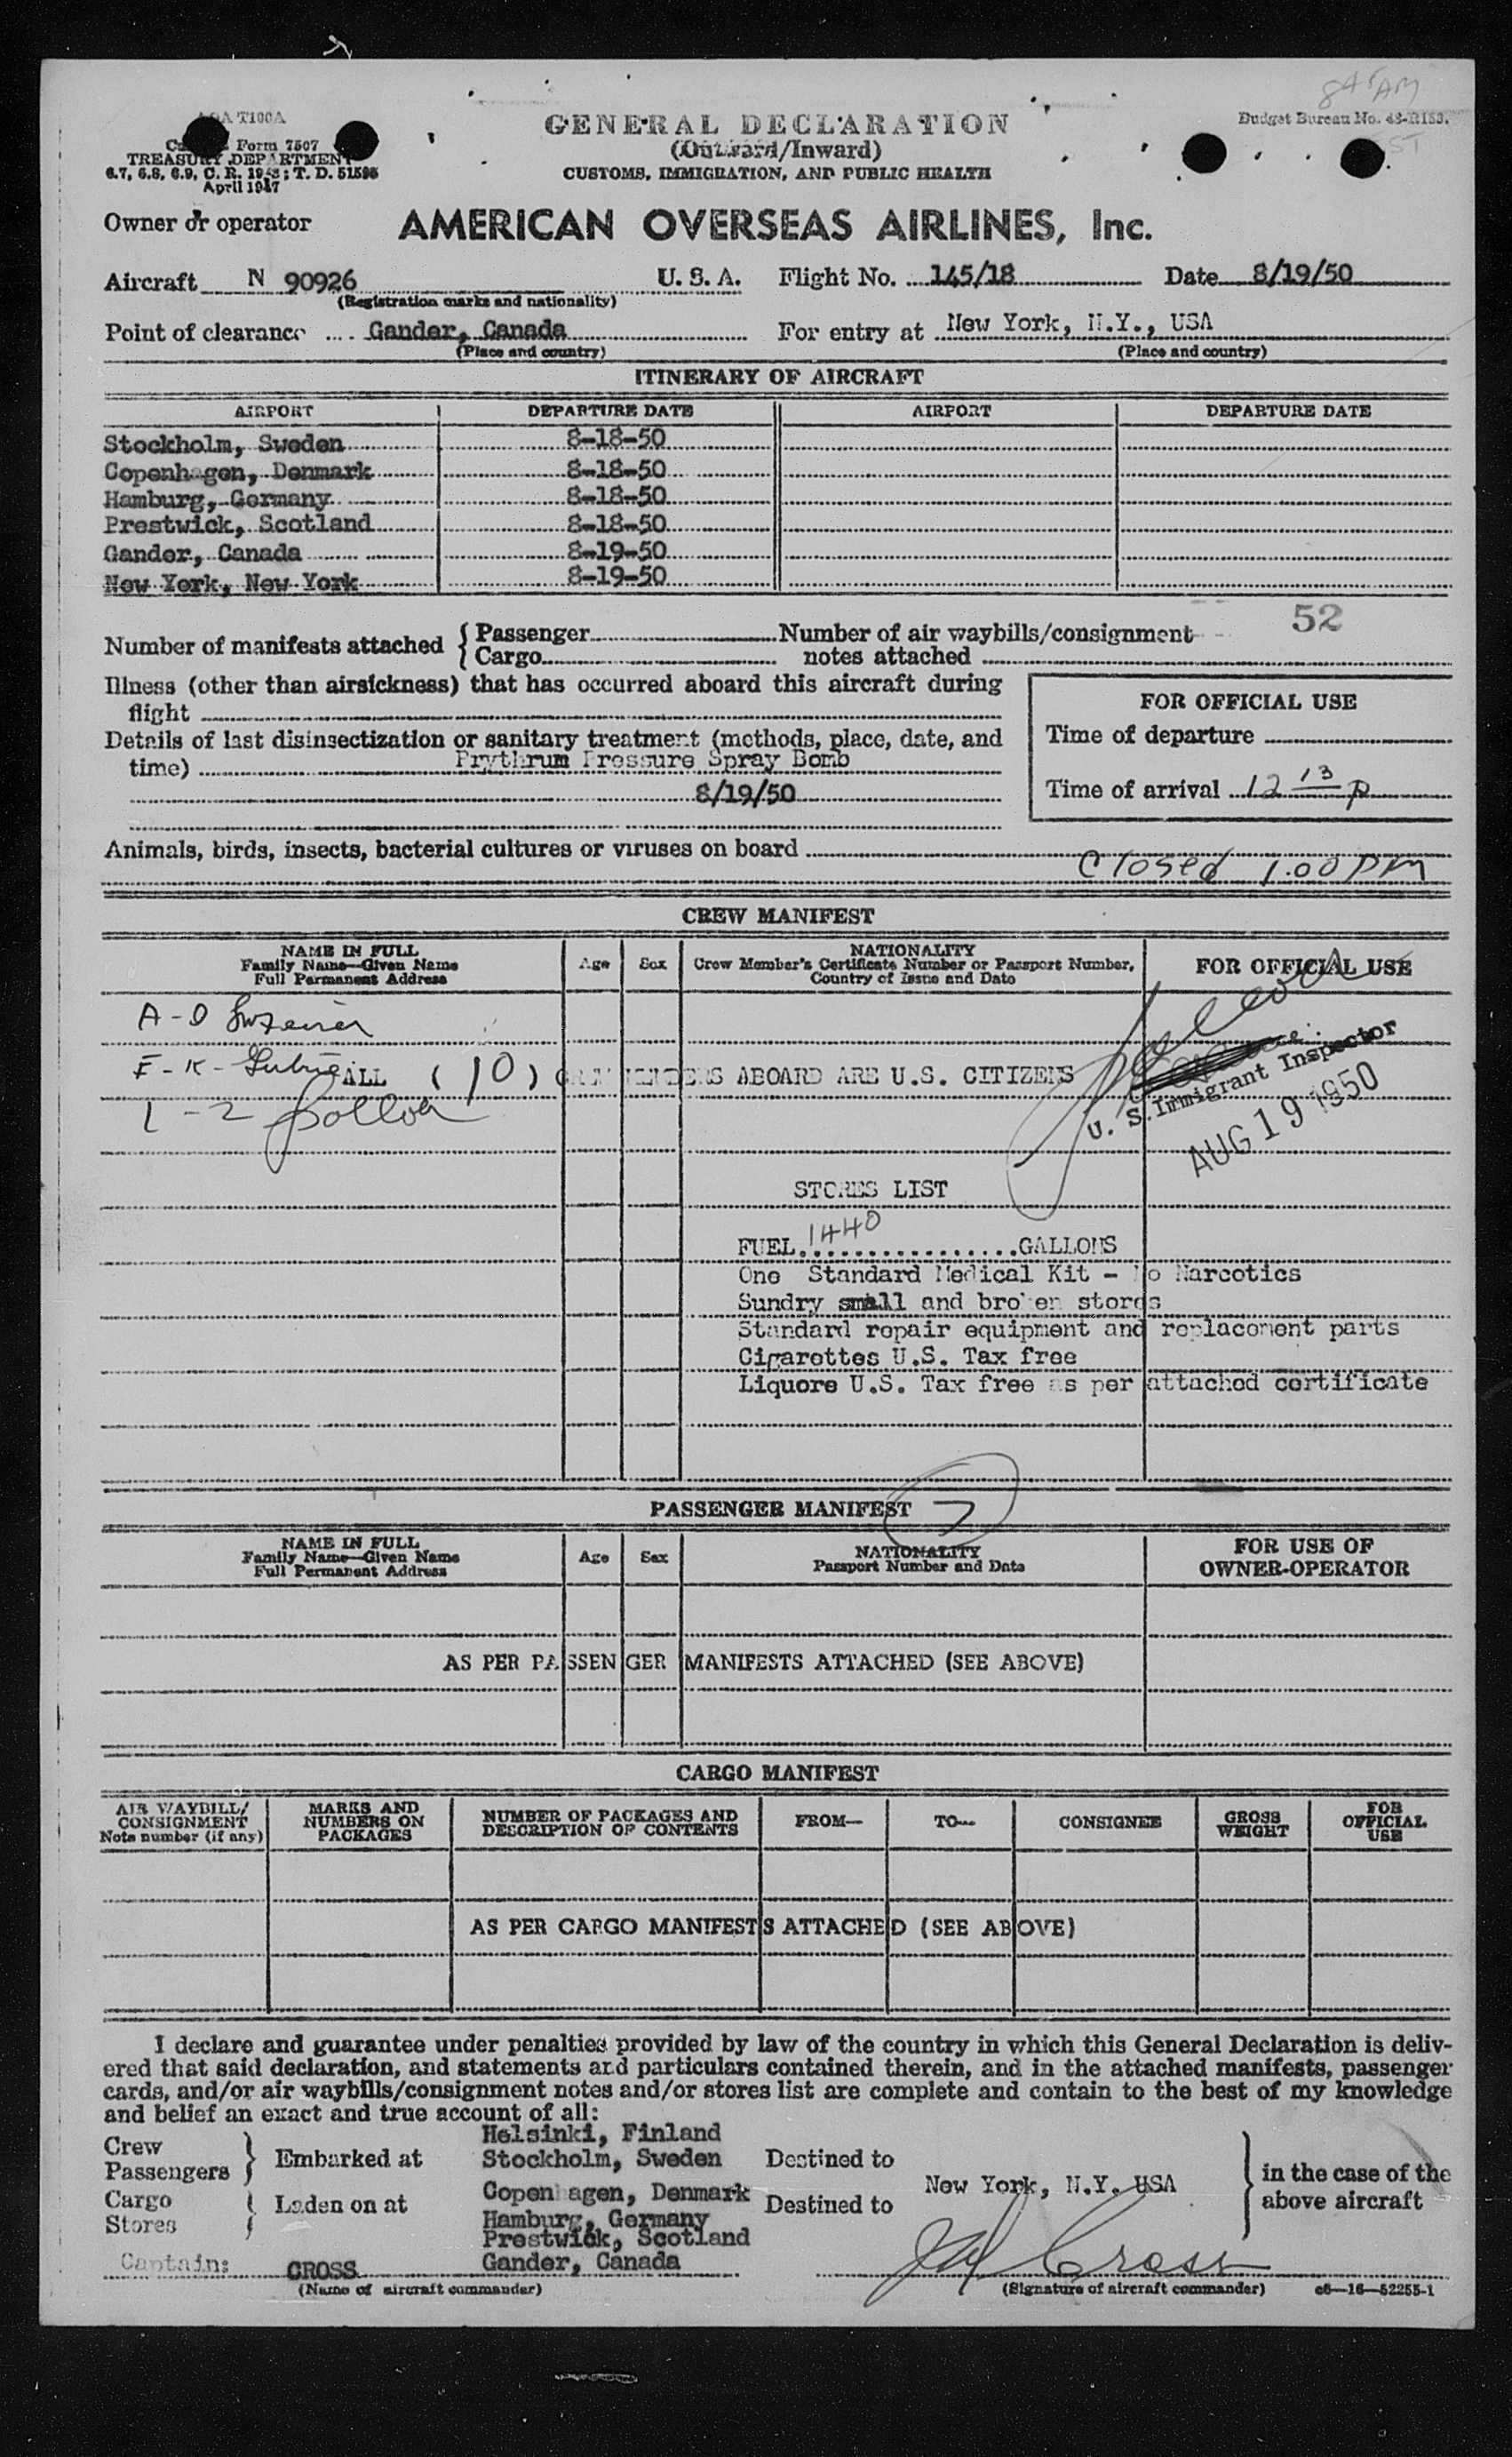 8 45 AM
AOA T100A
Form 7507
TREASURY DEPARTMENT
6.7, 6.8, 6.9, C. R. 1943; T. D. 51595
April 1947
GENERAL DECLARATION
(Outward/Inward)
CUSTOMS, IMMIGRATION, AND PUBLIC HEALTH
Budget Bureau No. 43-R153.
Owner or operator AMERICAN OVERSEAS AIRLINES, Inc.
Aircraft N 90926 U. S. A. Flight No. 145/18 Date 8/19/50
(Registration marks and nationality)
Point of clearance Gander, Canada For entry at New York, N.Y., USA
(Place and country) (Place and country)
ITINERARY OF AIRCRAFT
AIRPORT DEPARTURE DATE AIRPORT DEPARTURE DATE
Stockholm, Sweden 8-18-50
Copenhagen, Denmark 8-18-50
Hamburg, Germany 8-18-50
Prestwick, Scotland 8-18-50
Gander, Canada 8-19-50
New York, New York 8-19-50
52
Number of manifests attached { Passenger Number of air waybills/consignment
Cargo notes attached
Illness (other than airsickness) that has occurred aboard this aircraft during
flight
FOR OFFICIAL USE
Time of departure
Details of last disinsectization or sanitary treatment (methods, place, date, and
time) Prythrum Pressure Spray Bomb
8/19/50
Time of arrival 12 13 p
Animals, birds, insects, bacterial cultures or viruses on board
Closed 1.00 PM
CREW MANIFEST
NAME IN FULL
Family Name—Given Name
Full Permanent Address
Age Sex
NATIONALITY
Crew Member's Certificate Number or Passport Number,
Country of Issue and Date
FOR OFFICIAL USE
A - D
E - K -
ALL (10) CREW MEMBERS ABOARD ARE U.S. CITIZENS
L - Z
U. S. Immigrant Inspector
AUG 19 1950
STORES LIST
FUEL 1440 GALLONS
One Standard Medical Kit - No Narcotics
Sundry small and broken stores
Standard repair equipment and replacement parts
Cigarettes U.S. Tax free
Liquore U.S. Tax free as per attached certificate
PASSENGER MANIFEST 7
NAME IN FULL
Family Name—Given Name
Full Permanent Address
Age Sex
NATIONALITY
Passport Number and Date
FOR USE OF
OWNER-OPERATOR
AS PER PASSENGER MANIFESTS ATTACHED (SEE ABOVE)
CARGO MANIFEST
AIR WAYBILL/
CONSIGNMENT
Note number (if any)
MARKS AND
NUMBERS ON
PACKAGES
NUMBER OF PACKAGES AND
DESCRIPTION OF CONTENTS
FROM— TO— CONSIGNEE
GROSS
WEIGHT
FOR
OFFICIAL
USE
AS PER CARGO MANIFESTS ATTACHED (SEE ABOVE)
I declare and guarantee under penalties provided by law of the country in which this General Declaration is deliv-
ered that said declaration, and statements and particulars contained therein, and in the attached manifests, passenger
cards, and/or air waybills/consignment notes and/or stores list are complete and contain to the best of my knowledge
and belief an exact and true account of all:
Crew
Passengers } Embarked at
Helsinki, Finland
Stockholm, Sweden
Destined to
Cargo
Stores } Laden on at
Copenhagen, Denmark
Hamburg, Germany
Prestwick, Scotland
Gander, Canada
Destined to
New York, N.Y. USA
} in the case of the
above aircraft
Captain: CROSS
(Name of aircraft commander)
Cross
(Signature of aircraft commander) c6—16—52255-1